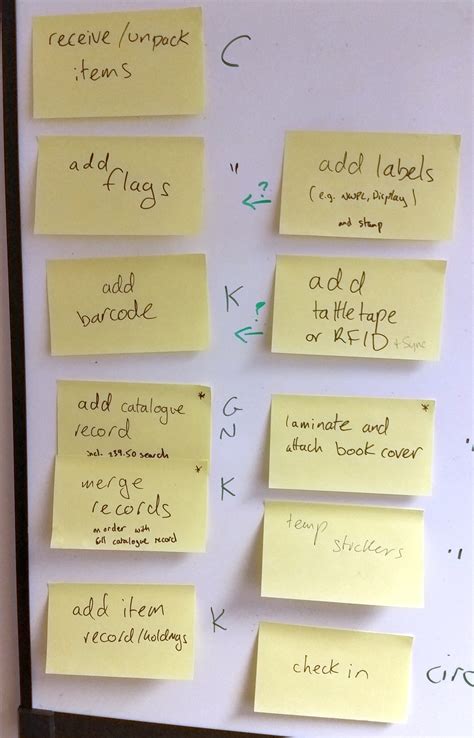 receive/unpack
items
C
add
flags
"
add
barcode
K
add catalogue
record
incl. z39.50 search
*
G
N
merge
records
on order with
full catalogue record
*
K
add item
record/holdings
K
add labels
(e.g. NWPL, Display)
and stamp
?
add
tattletape
or RFID + Sync
?
laminate and
attach book cover
*
"
temp
stickers
"
check in
circ